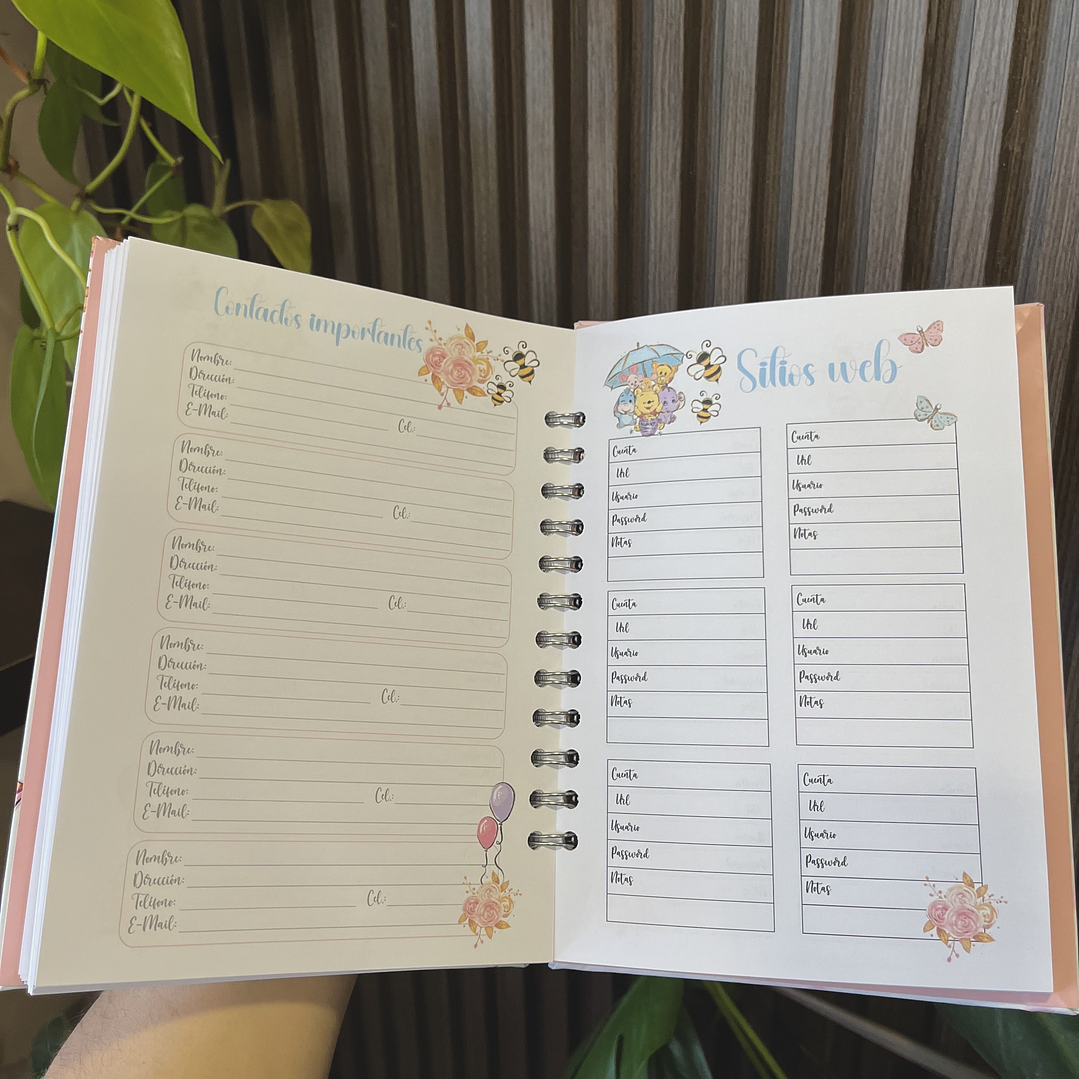 Contactos importantes
Nombre:
Dirección:
Teléfono:
Cel.:
E-Mail:
Nombre:
Dirección:
Teléfono:
Cel.:
E-Mail:
Nombre:
Dirección:
Teléfono:
Cel.:
E-Mail:
Nombre:
Dirección:
Teléfono:
Cel.:
E-Mail:
Nombre:
Dirección:
Teléfono:
Cel.:
E-Mail:
Nombre:
Dirección:
Teléfono:
Cel.:
E-Mail:
Sitios web
Cuenta
Url
Usuario
Password
Notas
Cuenta
Url
Usuario
Password
Notas
Cuenta
Url
Usuario
Password
Notas
Cuenta
Url
Usuario
Password
Notas
Cuenta
Url
Usuario
Password
Notas
Cuenta
Url
Usuario
Password
Notas